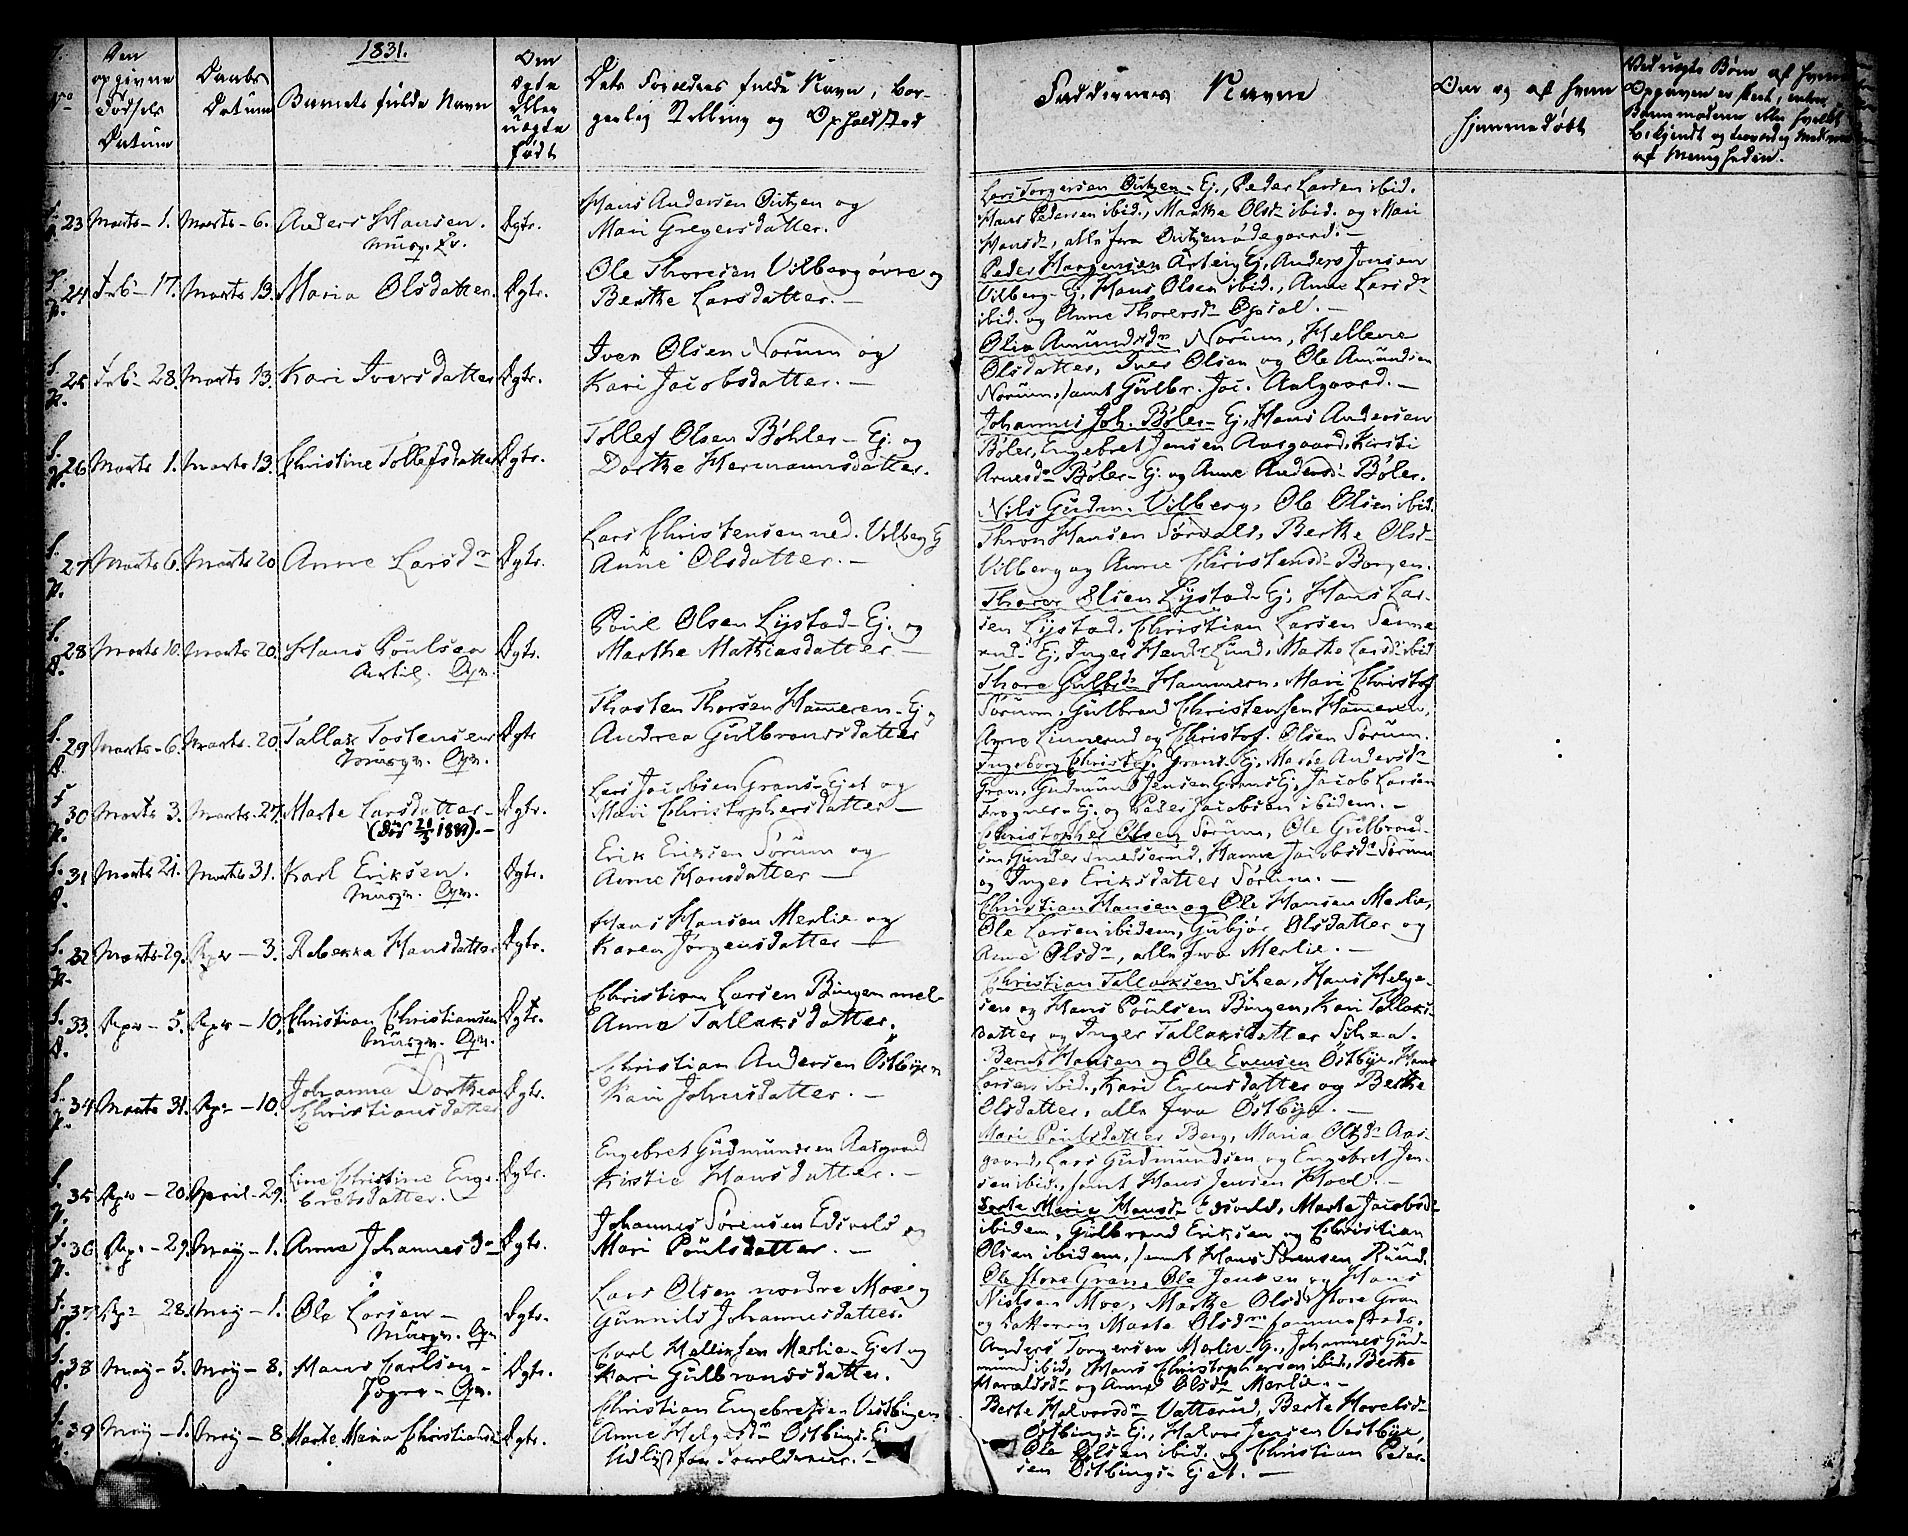 1831.
No
Den opgivne Fødsels Datum
Daabs Datum
Barnets fulde Navn
Om ægte eller uægte født
Dets Forældres fulde Navn, borgerlig Stilling og Opholdsted
Faddernes Navne
Om og af hvem hjemmedøbt
Ved uægte Børn af hvem Opgiven er skeet, enten Barnemoderen eller hvilket bekjendt og troværdig Medlem af Menigheden.
23 Marts - 1. Marts - 6. Anders Hansen. Ægte.
Hans Andersen Østzen og
Mari Gregersdatter.
Peder Larsen ibid.
Hans Pedersen ibid., Marthe Olsd. ibid. og Mari
Hansd., alle fra
24 Feb. - 17. Marts 13. Maria Olsdatter. Ægte.
Ole Thoresen Vilberg øvre og
Berthe Larsdatter. -
Anders Jensen
Vilberg - Ej, Hans Olsen ibid., Anne Larsdr
ibid. og Anne Thorersdr Opsal. -
25 Feb. 28. Marts 13. Kari Iversdatter Ægte.
Iver Olsen Norum og
Kari Jacobsdatter. -
Olia Amundsdr Norum, Hellene
Olsdatter, Iver Olsen og Ole Amundsen
Norum, samt Gulbr. Jac. Aalgaard. -
26 Marts 1. Marts 13. Christine Tollefsdatter Ægte.
Tollef Olsen Bøhler - Ej. og
Dorthe Hermannsdatter.
Johannes Joh. Bøler - Ej, Hans Andersen
Bøler, Engebret Jensen Aasgaard, Kirsti
Arnesdr Bøler - Ej. og Anne Andersdr Bøler.
27 Marts 6. Marts 20. Anne Larsdr Ægte.
Lars Christensen ned. Vilberg
Anne Olsdatter. -
Nils Gudm. Vilberg, Ole Olsen ibid.
Thron Hansen Sørvald, Berthe Olsd.
Vilberg og Anne Christensd. Borgen.
28 Marts 10. Marts 20. Hans Poulsen Ægte.
Poul Olsen Lystad - Ej. og
Marthe Mathiasdatter -
Thorer Olsen Lystad - Ej, Hans Lar-
sen Lystad, Christian Larsen Sanne
rud - Ej, Inger Lund, Marthe Larsd. ibid
29 Marts - 6. Marts - 20. Tallak Tostensen Ægte
Thosten Thorsen Hammeren - Ej
Andrea Gulbransdatter
Thore Gulbr. Hammern, Mari Christof.
Sørum, Gulbrand Christensen Hammeren,
Anne Linnerud og Christof. Olsen Sørum.
30 Marts 3. Marts - 27. Marte Larsdatter - Ægte.
Lars Jacobsen Grans - Ejet og
Mari Christophersdatter -
Ingeborg Christof. Grans - Ej, Marte Andersdr
Gran, Gudmund Jensen Grans Ej, Jacob Larsen
Frogner - Ej. og Peder Jacobsen ibidem. -
31 Marts 21. Marts 31. Karl Eriksen. Ægte.
Erik Eriksen Sørum og
Anne Hansdatter -
Christopher Olsen Sørum, Ole Gulbrand-
sen Hanne Jacobsdr Sørum
og Inger Eriksdatter Sørum. -
32 Marts - 29. Apr - 3. Rebekka Hansdatter Ægte.
Hans Hansen Merlie og
Karen Jørgensdatter -
Christian Hansen og Ole Hansen Merlie,
Ole Larsen ibidem, Gubjør Olsdatter og
Anne Olsdr, alle fra Merlie. -
33. Apr - 5. Apr - 10. Christian Christiansen Ægte.
Christian Larsen Bingen
Anne Tallaksdatter.
Christian Tallaksen Schea, Hans Helge-
sen og Hans Poulsen Bingen, Kari Tallaks-
datter og Inger Tallaksdatter Schea.
34 Marts 31. Apr - 10. Johanna Dorthea Christiansdatter Ægte.
Christian Andersen Østbye
Kari Johnsdatter. -
Bernt Hansen og Ole Evensen Østbye, Hans
Larsen ibid., Kari Evensdatter og Berthe
Olsdatter, alle fra Østbye. -
35 Apr - 20. April - 29. Line Christine Engebretsdatter. Ægte.
Engebret Gudmundsen Aasgaard
Kirstie Hansdatter. -
Mari Poulsdatter Berg, Maria Olsdr Aas-
gaard, Lars Gudmundsen og Engebret Jen-
sen ibid., samt Hans Jensen Hoel. -
36 Apr. - 29. May - 1. Anne Johannesdr Ægte.
Johannes Sørensen Edsvold og
Mari Poulsdatter. -
Berte Marie Hansdr Edsvold, Marte Jacobsdr
ibidem, Gulbrand Eriksen og Christian
Olsen ibidem, samt Hans Sørensen Ruud.
37 Apr 28. May - 1. Ole Larsen - Ægte.
Lars Olsen nordre Moe og
Gunnild Johannesdatter.
Ole Store Gran, Ole Jensen og Hans
Nielsen Moe, Marthe Olsdr Store Gran
og Marte Olsdr
38 May - 5. May - 8. Hans Carlsen - Ægte.
Carl Helliksen Merlie - Ejet og
Kari Gulbransdatter.
Anders Torgersen Merlie - Ej., Johannes Gud-
mund ibid, Hans Christophersen ibid, Berthe
Haraldsdr og Anne Olsdr Merlie. -
39 May - 1. May - 8. Marte Maria Christiansdr Ægte.
Christian Engebretsen Vestbyen
Anne Helgesdr Østbyes - Ej
Berte Halvorsdr Vatterud, Berte
Østbyes - Ej., Halvor Jensen Vestbye,
Ole Olsen ibid. og Christian Peder-
sen Østbyes - Ejet. -